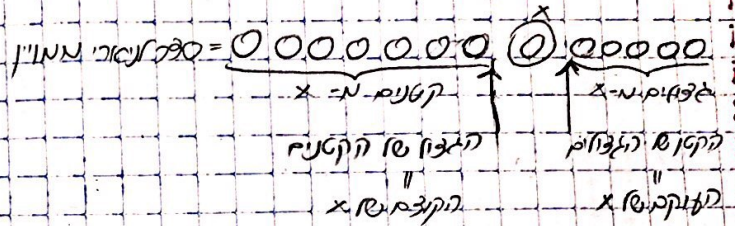 x
סדר לינארי ממויין = O O O O O O O O O O O O O
קטנים מ- x גדולים מ-x
הגדול של הקטנים הקטן של הגדולים
= =
הקודם של x העוקב של x